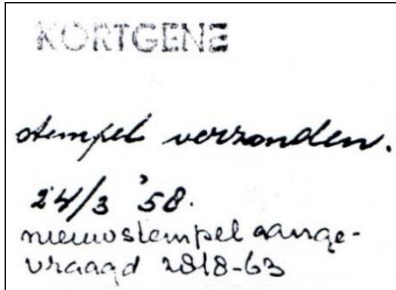 KORTGENE
stempel verzonden.
24/3 '58.
nieuw stempel aange-
vraagd 2818-63